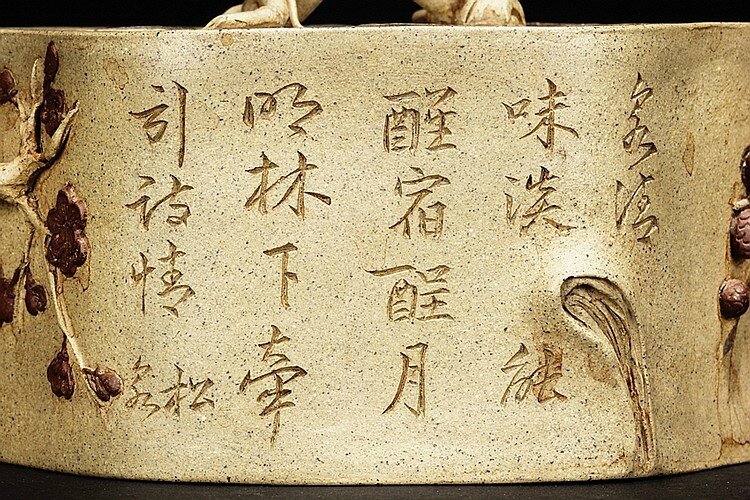 泉清
味淡能
醒宿酲月
明林下牽
引詩情
松泉